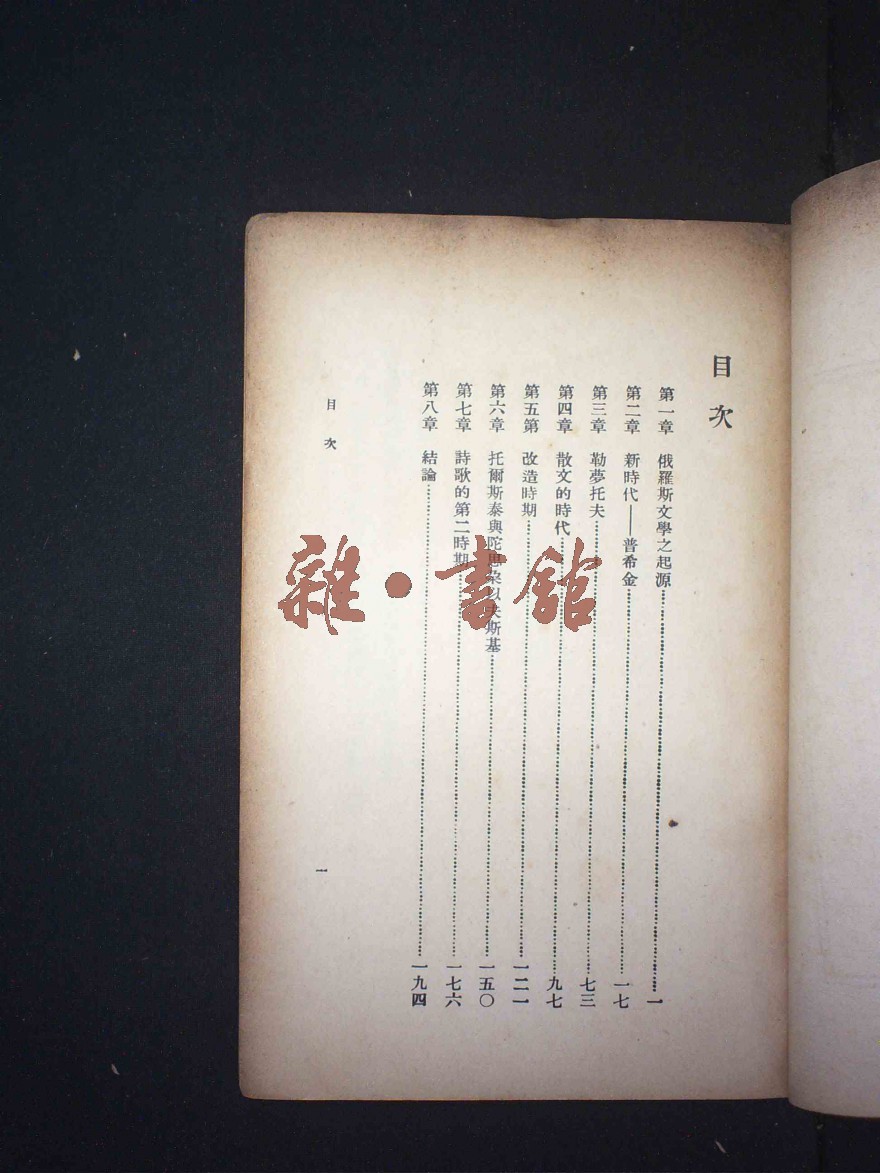 目次
第一章 俄羅斯文學之起源……一
第二章 新時代——普希金……一七
第三章 勒夢托夫……七三
第四章 散文的時代……九七
第五第 改造時期……一二一
第六章 托爾斯泰與陀思朶以夫斯基……一五〇
第七章 詩歌的第二時期……一七六
第八章 結論……一九四
目次
一
雜·書館